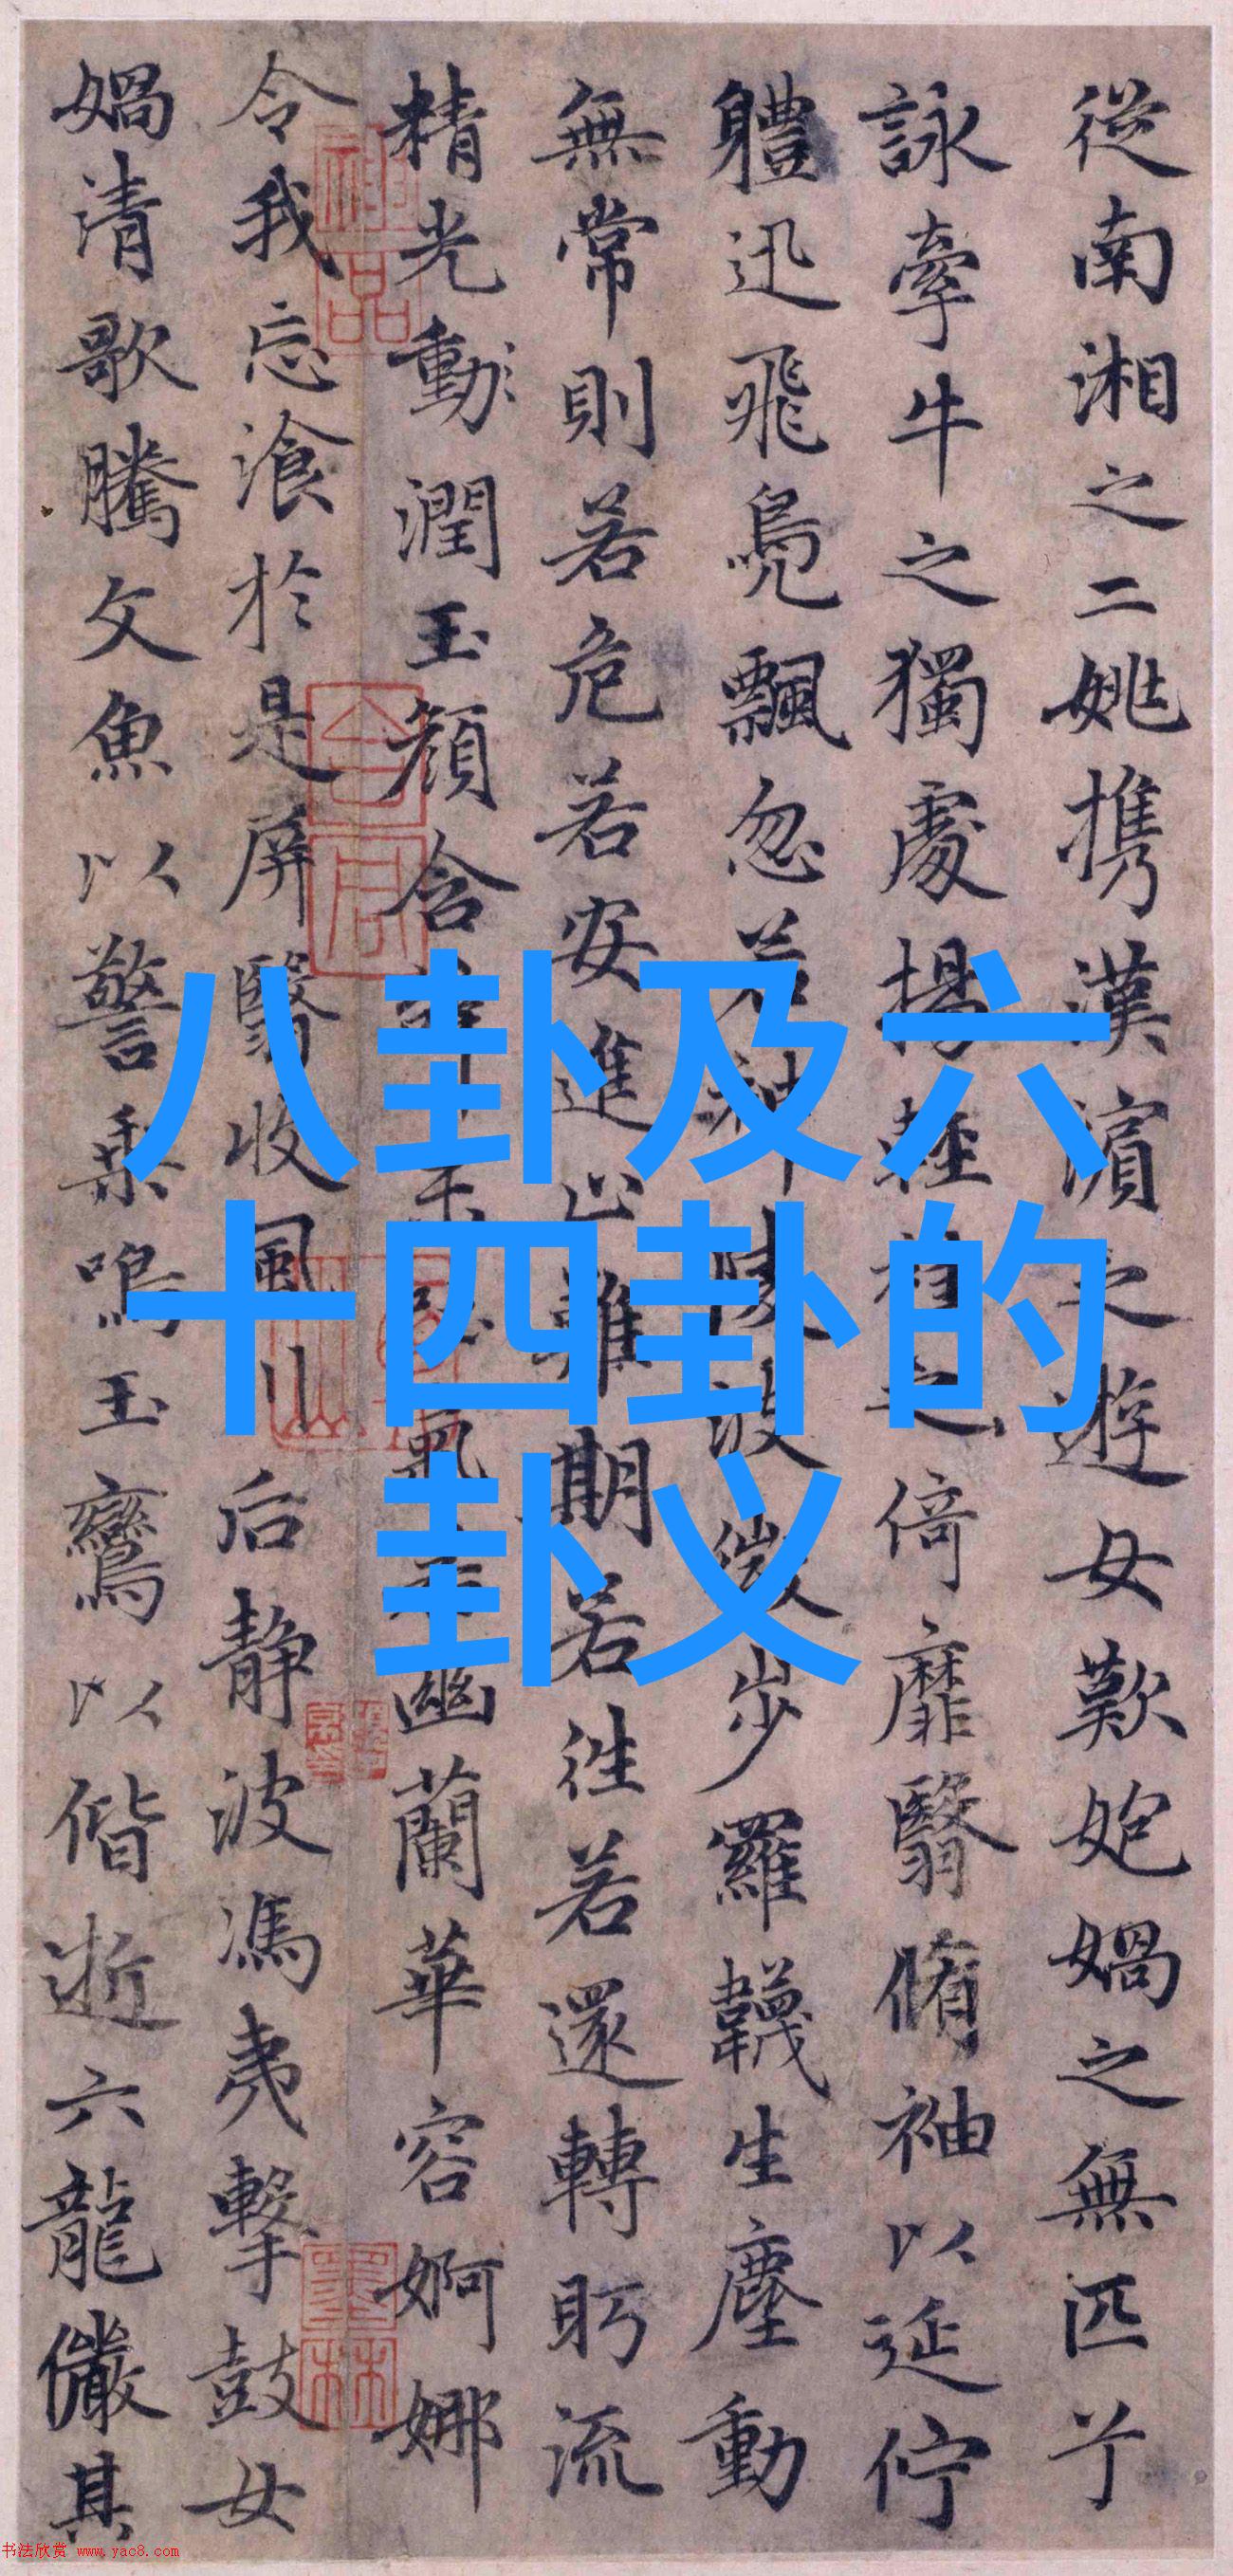 從南湘之二姚携漢濱之遊女歎匏媧之無匹兮
詠牽牛之獨處揚輕袿之倚靡翳脩袖以延佇
體迅飛鳧飄忽若神陵波微步羅韈生塵動
無常則若危若安進止難期若往若還轉眄流
精光動潤玉顏含辭未氣若幽蘭華容婀娜
令我忘飡於是屏翳收風川后静波馮夷擊鼓女
媧清歌騰文魚以警乘鳴玉鸞以偕逝六龍儼其
八卦及六
十四卦的
卦义
书法欣赏 www.yac8.com